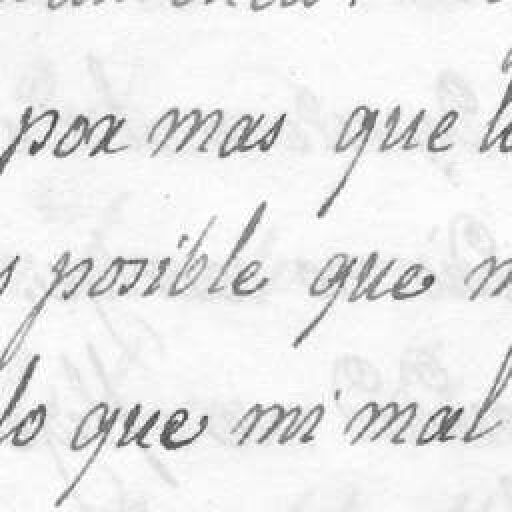 por mas que lo
posible que
lo que mi mal